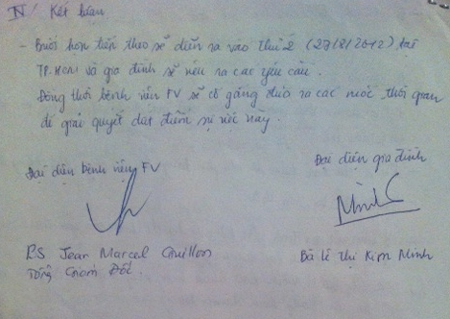 IV/ Kết luận
- Buổi họp tiếp theo sẽ diễn ra vào thứ 2 (27/8/2012) tại
TP.HCM và gia đình sẽ nêu ra các yêu cầu.
Đồng thời bệnh viện FV sẽ cố gắng đưa ra các mốc thời gian
để giải quyết dứt điểm sự việc này.
Đại diện bệnh viện FV
Đại diện gia đình
Minh
BS Jean Marcel Guillon
Tổng Giám Đốc.
Bà Lê Thị Kim Minh